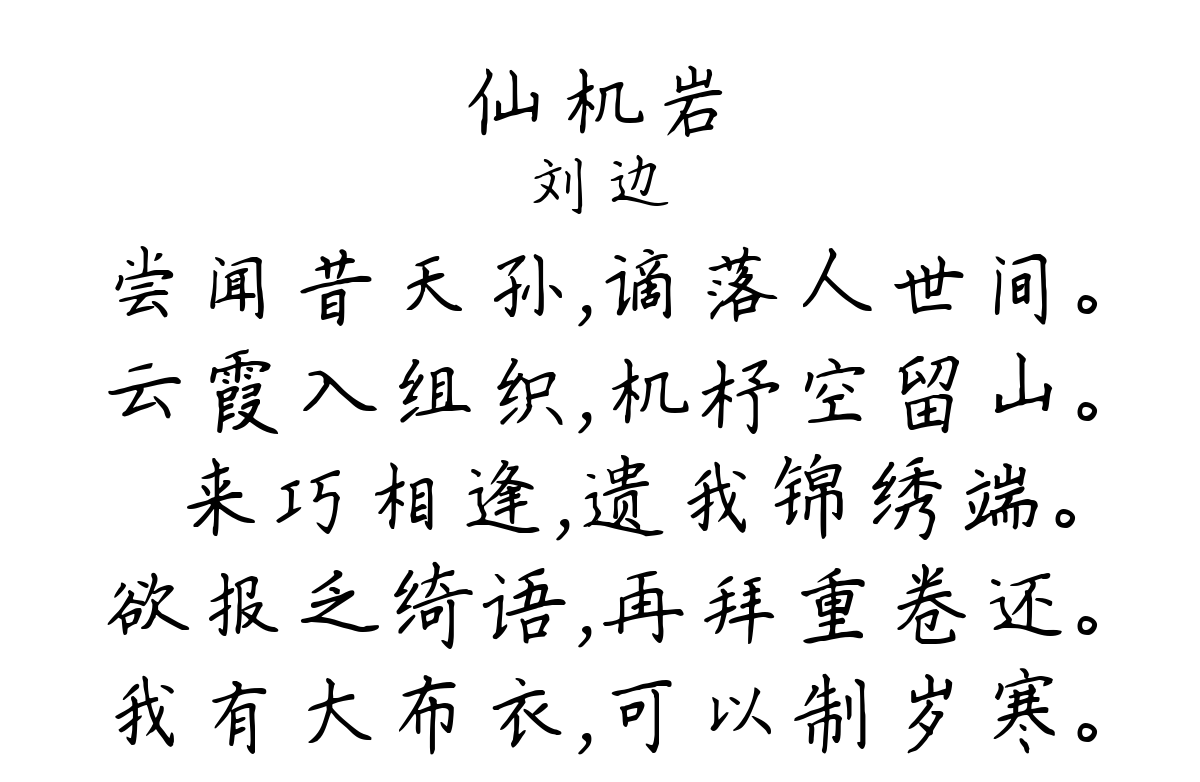 仙机岩
刘边
尝闻昔天孙,谪落人世间。
云霞入组织,机杼空留山。
来巧相逢,遗我锦绣端。
欲报乏绮语,再拜重卷还。
我有大布衣,可以制岁寒。